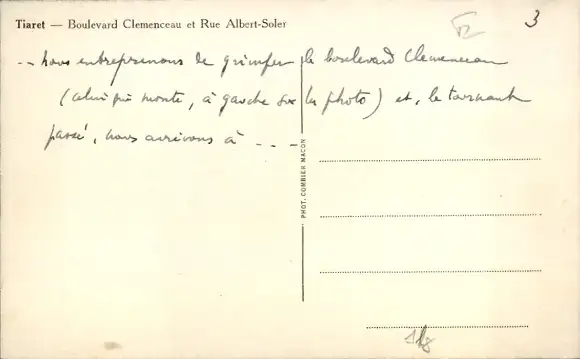 Tiaret — Boulevard Clemenceau et Rue Albert-Soler
3
-- nous entreprenons de grimper le boulevard Clemenceau
(celui qui monte, à gauche sur la photo) et, le tournant
passé, nous arrivons à - - -
PHOT. COMBIER MACON